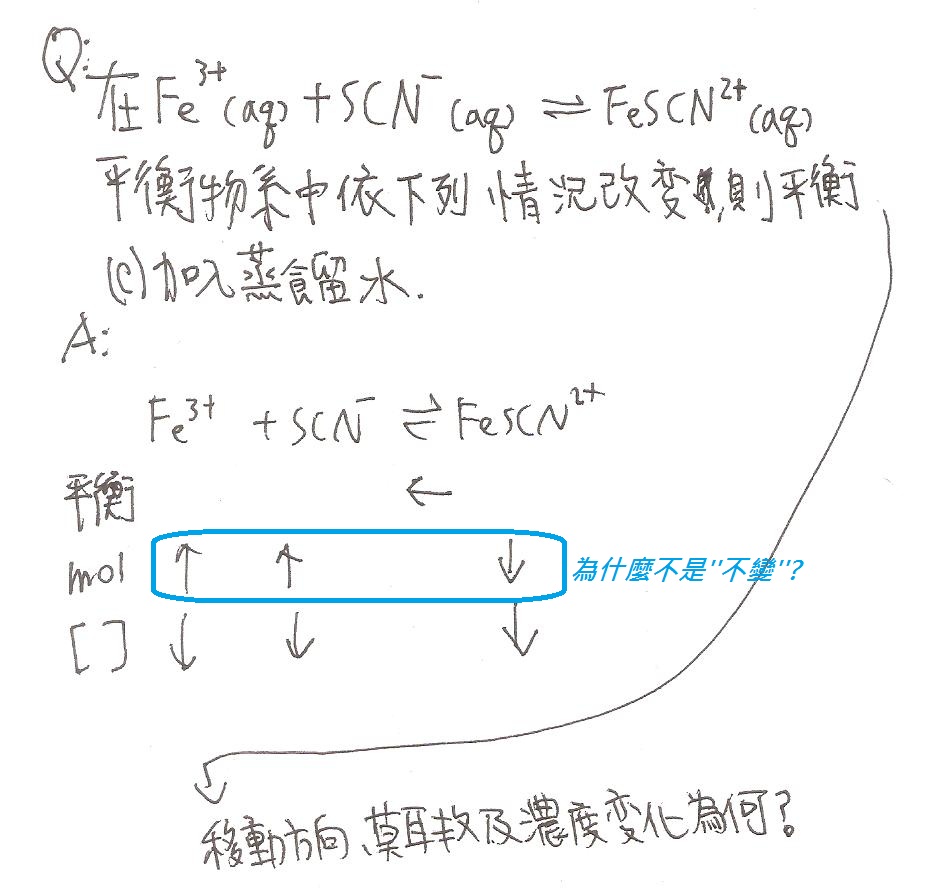 Q:
在Fe³⁺(aq)+SCN⁻(aq) ⇌ FeSCN²⁺(aq)
平衡物系中依下列情況改變,則平衡
(C)加入蒸餾水.
A:
Fe³⁺ +SCN⁻ ⇌ FeSCN²⁺
平衡 ←
mol ↑ ↑ ↓ 為什麼不是"不變"?
[ ] ↓ ↓ ↓
移動方向、莫耳数及濃度变化為何?